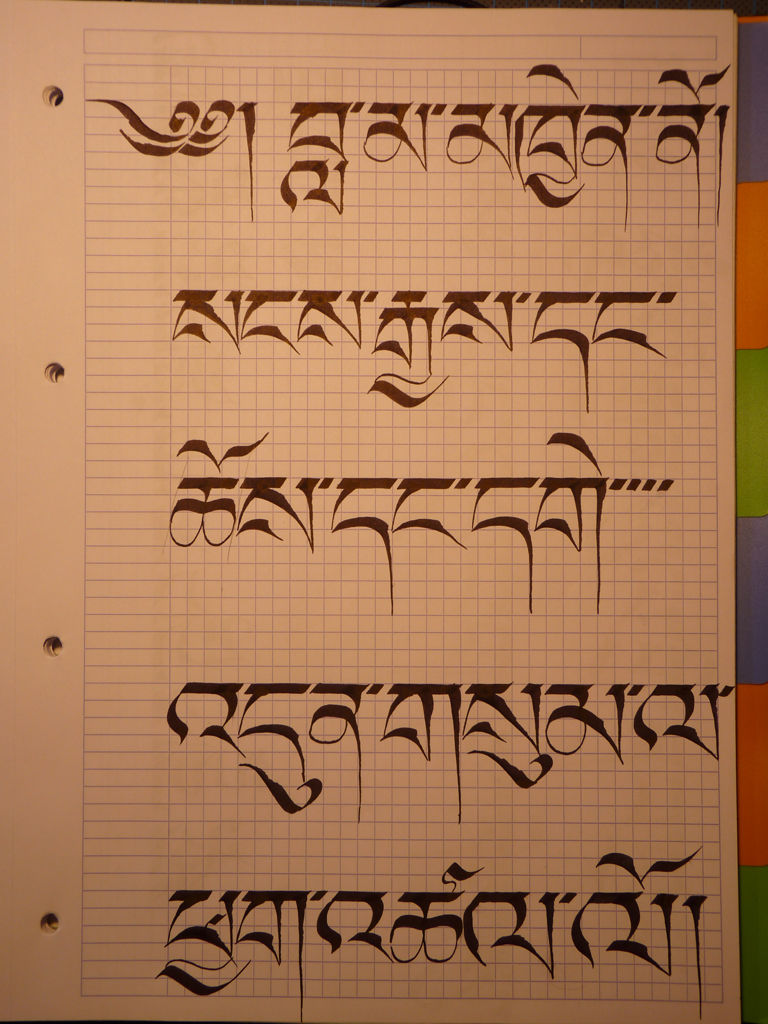 ༄༅། བླ་མ་མཁྱེན་ནོ།
སངས་རྒྱས་དང་
ཆོས་དང་དགེ་་་་
འདུན་གསུམ་ལ་
ཕྱག་འཚལ་ལོ།